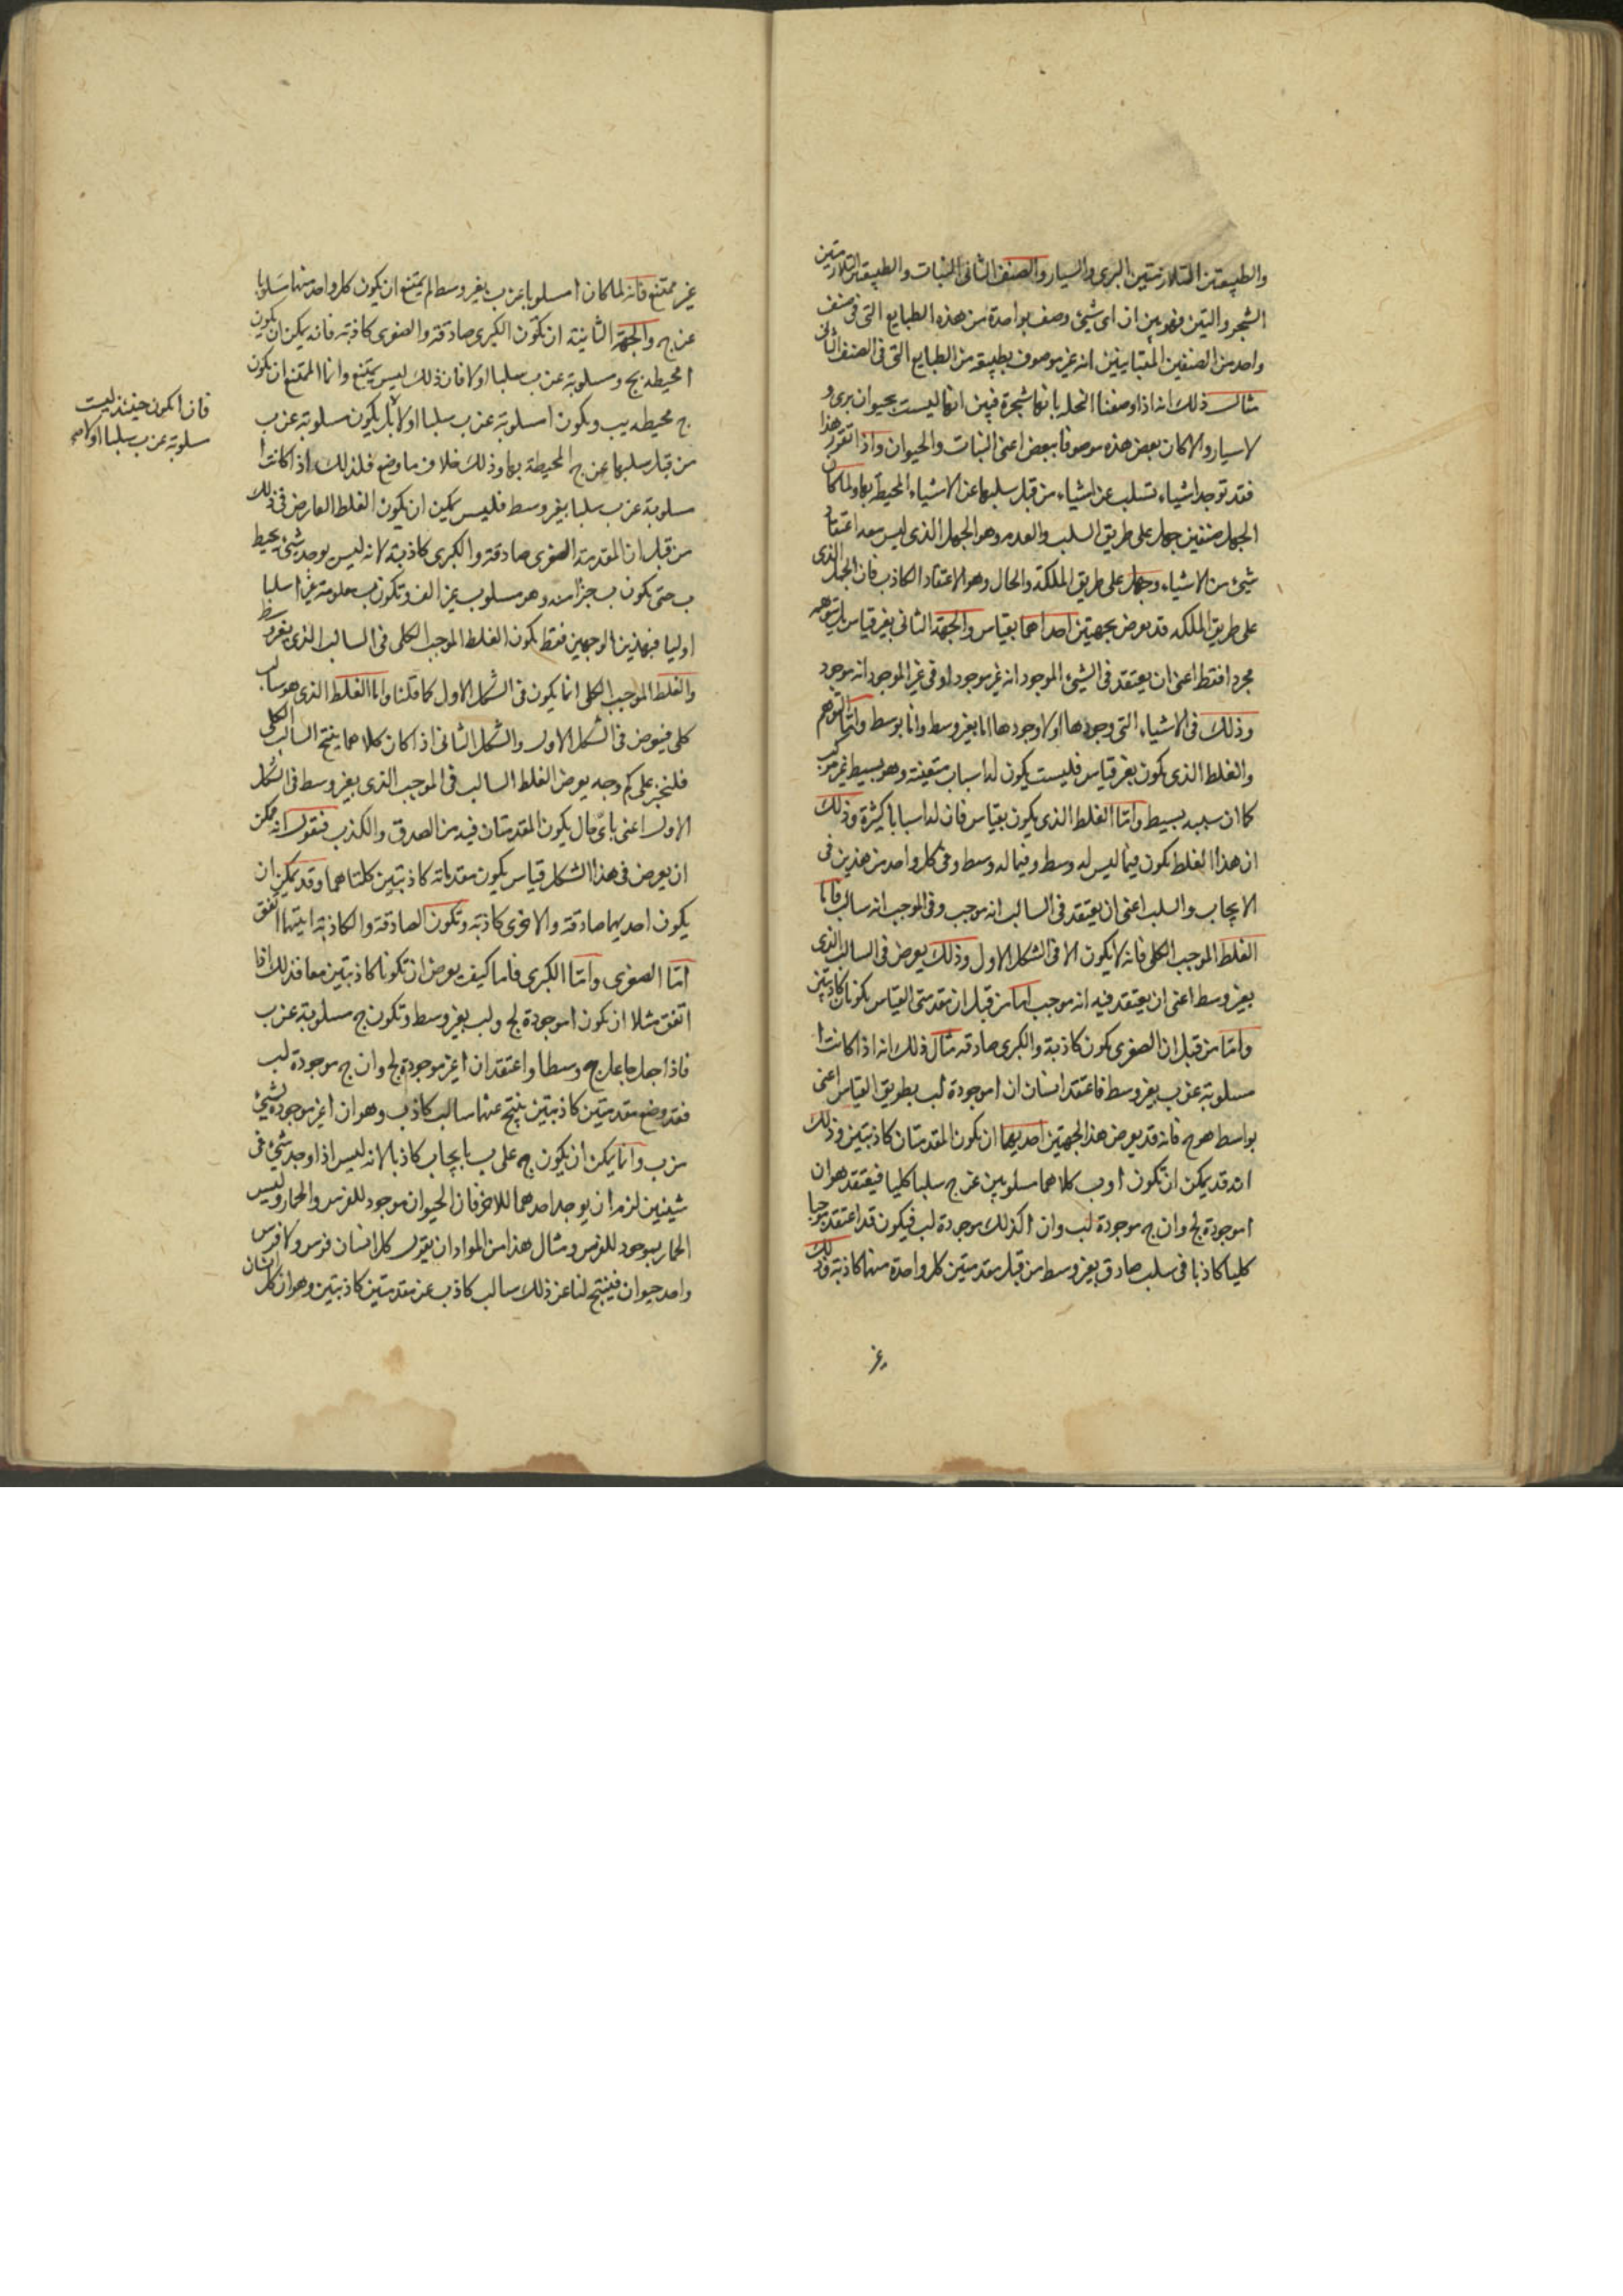 والطبيعتين المتلازمتين البرى والسيار والصنف الثانى النبات والطبيعتين المتلازمتين
الشجر والتين فهو بين ان اى شيئ وصف بواحدة من هذه الطبايع التى فى صنف
واحد من الصنفين المتباينين انه غير موصوف بطبيعة من الطبايع التى فى الصنف الثانى
مثال ذلك انه اذا وصفنا النخلة بانها شجرة فبين انها ليست بحيوان برى و
لا سيار والا كان بعض هذه موصوفا ببعض اعنى النبات والحيوان واذا تقرر هذا
فقد توجد اشياء تسلب عن اشياء من قبل سلبها عن الاشياء المحيطة بها ولما كان
الجهل صنفين جهل على طريق السلب والعدم وهو الجهل الذى ليس معه اعتقاد
شيئ من الاشياء وجهل على طريق الملكة والحال وهو الاعتقاد الكاذب فان الجهل الذى
على طريق الملكة قد يعرض بجهتين احداهما بقياس والجهة الثانى بغير قياس بل بتوهم
مجردا فقط اعنى ان يعتقد فى الشيئ الموجود انه غير موجود او فى غير الموجود انه موجود
وذلك فى الاشياء التى وجودها او لا وجودها اما بغير وسط واما بوسط واما التوهم
والغلط الذى يكون بغير قياس فليست يكون له اسباب متفينة وهو بسيط غير مركب
كما ان سببه بسيط واما الغلط الذى يكون بقياس فان له اسبابا كثيرة وذلك
ان هذا الغلط يكون فيما ليس له وسط وفيما له وسط وفى كل واحد من هذين فى
الايجاب والسلب اعنى ان يعتقد فى السالب انه موجب وفى الموجب انه سالب فاما
الغلط الموجب الكلى فانه لا يكون الا فى الشكل الاول وذلك يعرض فى السالب الذى
بغير وسط اعنى ان يعتقد فيه انه موجب اما من قبل ان مقدمتى القياس يكونان كاذبتين
واما من قبل ان الصغرى يكون كاذبة والكبرى صادقة مثال ذلك انه اذا كانت ا
مسلوبة عن ب بغير وسط فاعتقد انسان ان ا موجودة لب بطريق القياس اعنى
بواسط هو ج فانه قد يعرض هذا لجهتين احديهما ان تكون المقدمتان كاذبتين وذلك
انه قد يمكن ان تكون ا وب كلاهما مسلوبين عن ج سلبا كليا فيعتقد هو ان
ا موجودة لج وان ج موجودة لب وان ا كذلك موجودة لب فيكون قد اعتقد موجبا
كليا كاذبا فى سلب صادق بغير وسط من قبل مقدمتين كل واحدة منها كاذبة وذلك
غير
غير ممتنع فانه لما كان ا مسلوبا عن ب بغير وسط لم يمتنع ان يكون كل واحد منها مسلوبا
عن ج والجهة الثانية ان تكون الكبرى صادقة والصغرى كاذبة فانه يمكن ان يكون
ا محيطة بج ومسلوبة عن ب سلبا اولا فان ذلك ليس يمتنع وانما الممتنع ان يكون
ج محيطة بب ويكون ا مسلوبة عن ب سلبا اولا بل يكون مسلوبة عن ب
من قبل سلبها عن ج المحيطة بها وذلك خلاف ما وضع فلذلك اذا كانت ا
مسلوبة عن ب سلبا بغير وسط فليس يمكن ان يكون الغلط العارض فى ذلك
من قبل ان المقدمة الصغرى صادقة والكبرى كاذبة لانه ليس يوجد شيئ يحيط
ب حتى يكون ب جزأ منه وهو مسلوب عن الف وتكون ب معلومة عن ا سلبا
اوليا فبهذين الوجهين فقط يكون الغلط الموجب الكلى فى السالب الذى بغير وسط
والغلط الموجب الكلى انما يكون فى الشكل الاول كما قلنا واما الغلط الذى هو سالب
كلى فيعرض فى الشكل الاول والشكل الثانى اذا كان كلاهما ينتج السالب الكلى
فلنخبر على كم وجه يعرض الغلط السالب فى الموجب الذى بغير وسط فى الشكل
الاول اعنى باى حال يكون المقدمتان فيه من الصدق والكذب فنقول انه ممكن
ان يعرض فى هذا الشكل قياس يكون مقدماته كاذبتين كلتاهما وقد يمكن ان
يكون احديهما صادقة والاخرى كاذبة وتكون الصادقة والكاذبة ايتهما اتفق
اما الصغرى واما الكبرى فاما كيف يعرض ان تكونا كاذبتين معا فذلك اذا
اتفق مثلا ان تكون ا موجودة لج ولب بغير وسط وتكون ج مسلوبة عن ب
فاذا جعل جاعل ج وسطا واعتقد ان ا غير موجودة لج وان ج موجودة لب
فقد وضع مقدمتين كاذبتين ينتج عنها سالب كاذب وهو ان ا غير موجودة لشيئ
من ب وانما يمكن ان يكون ج على ب بايجاب كاذبا لانه ليس اذا وجد شيئ فى
شيئين لزم ان يوجد احدهما للاخر فان الحيوان موجود للفرس والحمار وليس
الحمار بموجود للفرس ومثال هذا من المواد ان يقول كل انسان فرس ولا فرس
واحد حيوان فينتج لنا عن ذلك سالب كاذب عن مقدمتين كاذبتين وهو ان كل انسان
فان ا يكون حينئذ ليست
مسلوبة عن ب سلبا اولا صح